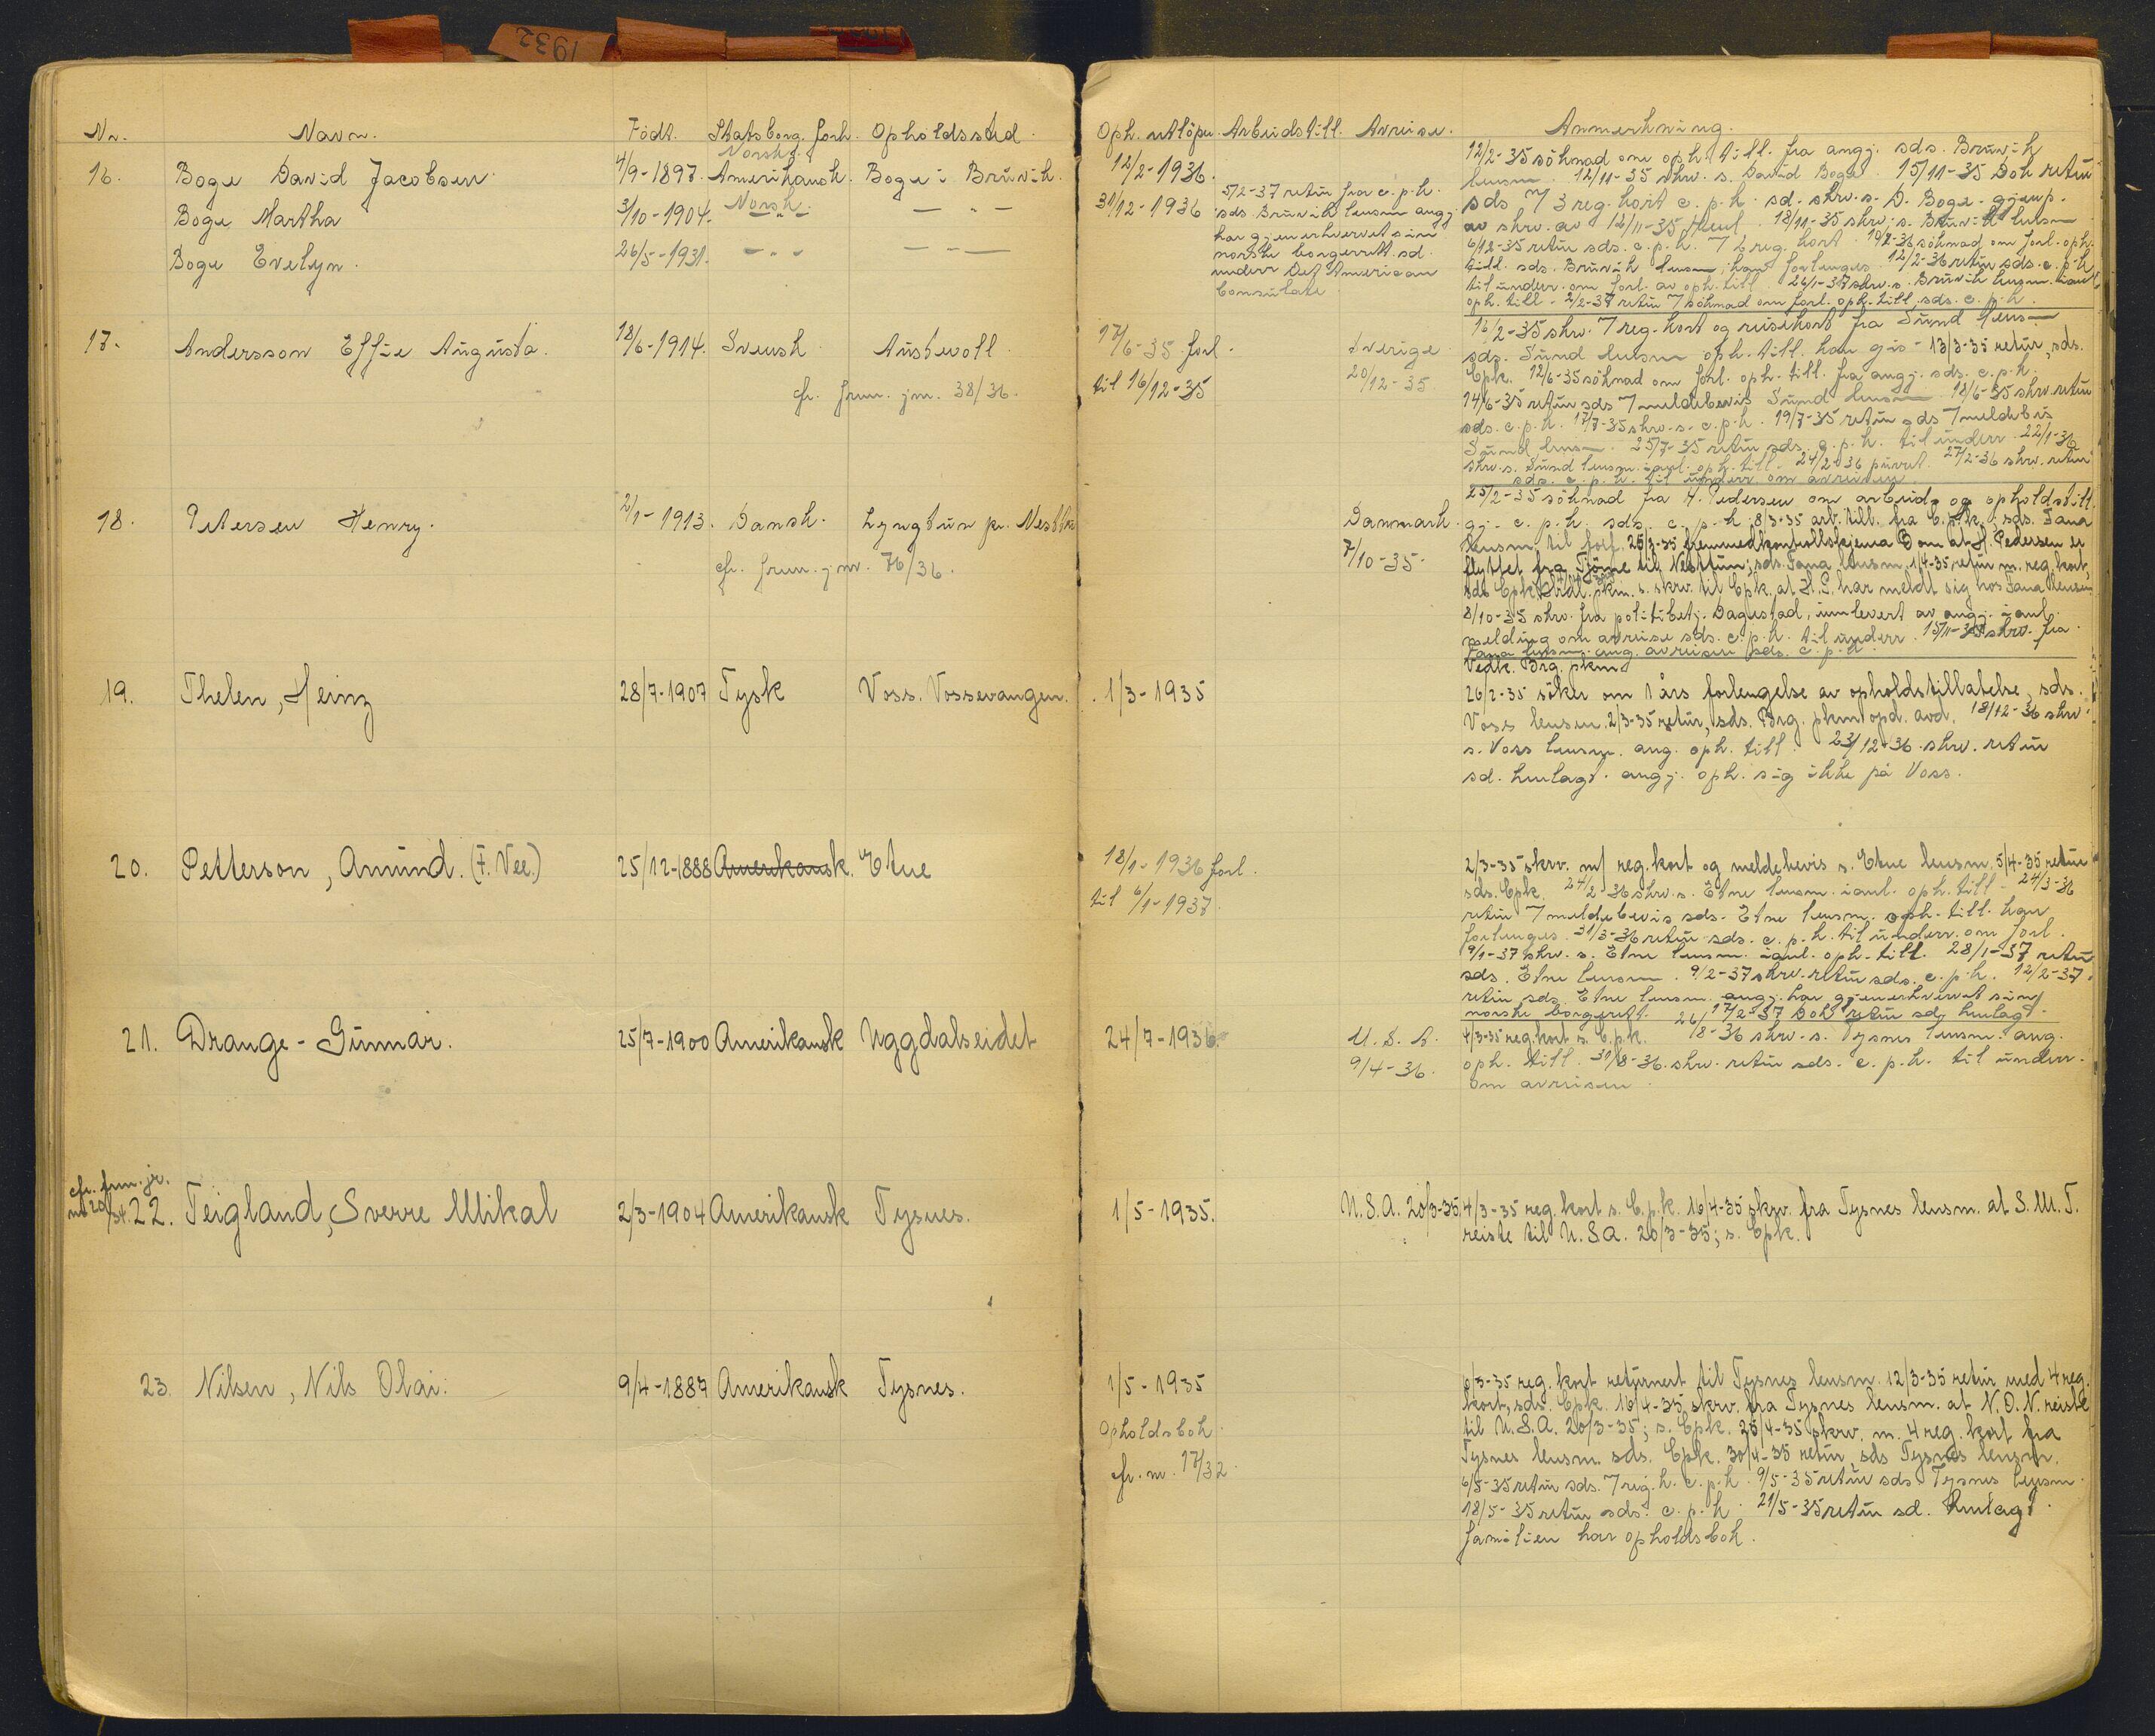 1932
Nr. Navn. Födt. Statsborg. forh. Opholdssted.
16. Boge David Jacobsen. 4/9-1897. Norsk. Amerikansk. Boge i Bruvik.
Boge Martha 3/10-1904. Norsk. — " —
Boge Evelyn. 26/5-1931. - " - — " —
17. Andersson Effie Augusta. 18/6-1914. Svensk. Austevoll.
cfr. frem. jnr. 38/36.
18. Petersen Henry. 2/1-1913. Dansk. Lyngtun pr. Nesttun
cfr. frem. jnr. 76/36.
19. Thelen, Heinz 28/7-1907 Tysk Voss. Vossevangen.
20. Petterson, Amund. (F. Vee.) 25/12-1888 Amerikansk. Etne
21. Drange - Gunnar. 25/7-1900 Amerikansk Uggdalseidet
cfr. frem. jr.
nr 20/34. 22. Teigland, Sverre Mikal 2/3-1904 Amerikansk Tysnes.
23. Nilsen, Nils Olai. 9/4-1887 Amerikansk Tysnes.
Oph. utlöper. Arbeidstill. Avreise. Anmerkning.
12/2-1936.
31/12-1936
5/2-37 retur fra c.p.k.
sds. Bruvik lensm. angj.
har gjenerhvervet sin
norske borgerrett. sd.
underr. Det American
Consulate
12/2-35 söknad om oph. till. fra angj. sds. Bruvik
lensm. 12/11-35 skrv. s. David Boge. 15/11-35 Dok retur
sds 7 3 reg. kort c.p.k. sd. skrv. s. D. Boge - gjenp.
av skrv. av 12/11-35 18/11-35 skrv. s. Bruvik lensm
6/12-35 retur sds. c.p.k. 7 2 reg. kort. 10/2-36 söknad om forl. oph.
till. sds. Bruvik lensm. kan forlenges. 12/2-36 retur sds. c.p.k.
til underr. om forl. av oph. till. 26/1-37 skrv. s. Bruvik lensm. ianl.
oph. till. - 2/2-37 retur 7 söknad om forl. oph. till. sds. c.p.k.
17/6-35 forl.
til 16/12-35
Sverige
20/12-35.
16/2-35 skrv. 7 reg. kort og reisekort fra Sund lensm
sds. Sund lensm oph. till. kan gis - 13/3-35 retur, sds.
Cpk. 12/6-35 söknad om forl. oph. till. fra angj. sds. c.p.k.
14/6-35 retur sds 7 meldebevis Sund lensm 18/6-35 skrv. retur
sds. c.p.k. 17/7-35 skrv. s. c.p.k. 19/7-35 retur sds 7 meldebevis
Sund lensm. 25/7-35 retur sds. c.p.k. til underr. 22/1-36
skrv. s. Sund lensm. ianl. oph. till. - 24/2-36 purret. 27/2-36 skrv. retur
sds. c.p.k. til underr. om avreisen.
Danmark.
7/10-35.
25/2-35 söknad fra H. Pedersen om arbeids og opholdstill.
gj. c.p.k. sds. c.p.k. 8/3-35 arb. till. fra C.p.k., sds. Fana
lensm. til forf. 25/3-35 fremmedkontrollskjema B om at H. Pedersen er
flyttet fra Tjöme til Nesttun; sds. Fana lensm. 1/4-35 retur m. reg. kort,
sds Cpk. pkm. s. skrv. til Cpk. at H. P. har meldt sig hos Fana lensm.
8/10-35 skrv. fra politibetj. Dagestad, innlevert av angj. ianl.
melding om avreise sds. c.p.k. til underr. 15/11-35 skrv. fra
Fana lensm. ang. avreisen sds. c.p.k.
1/3-1935
Vedk. Brg. pkm
26/2-35 söker om 1 års forlengelse av opholdstillatelse, sds.
Voss lensm. 2/3-35 retur, sds. Brg. pkm opd. avd. 18/12-36 skrv.
s. Voss lensm. ang. oph. till. 23/12-36. skrv. retur
sd. henlagt. angj. oph. sig ikke på Voss.
18/1-1936 forl.
til 6/1-1937.
2/3-35 skrv. m/ reg. kort og meldebevis s. Etne lensm. 5/4-35 retur
sds. Cpk. 24/2-36 skrv. s. Etne lensm. ianl. oph. till. - 24/3-36
retur 7 meldebevis sds. Etne lensm. oph. till. kan
forlenges. 31/3-36 retur sds. c.p.k. til underr. om forl.
9/1-37 skrv. s. Etne lensm. ianl. oph. till. 28/1-37 retur
sds. Etne lensm. 9/2-37 skrv. retur sds. c.p.k. 12/2-37.
retur sds. Etne lensm. angj. har gjenerhvervet sin
norske borgerett. 17/2-37 Dok retur sd. henlagt.
24/7-1936.
U. S. A.
9/4-36.
4/3-35 reg. kort s. C.p.k. 26/8-36 skrv. s. Tysnes lensm. ang.
oph. till. 31/8-36. skrv. retur sds. c.p.k. til underr.
om avreisen.
1/5-1935. U.S.A. 20/3-35. 4/3-35 reg. kort s. C.p.k. 16/4-35 skrv. fra Tysnes lensm. at S. M. T.
reiste til U.S.A. 20/3-35; s. Cpk.
1/5-1935
Opholdsbok.
cfr. nr. 17/32.
6/3-35 reg. kort returnert til Tysnes lensm. 12/3-35 retur med 4 reg.
kort, sds. Cpk. 16/4-35 skrv. fra Tysnes lensm. at N. O. N. reiste
til U.S.A. 20/3-35; s. Cpk. 25/4-35 skrv. m. 4 reg. kort fra
Tysnes lensm. sds. Cpk. 30/4-35 retur, sds Tysnes lensm.
6/5-35 retur sds. 7 reg. k. c.p.k. 9/5-35 retur sds. Tysnes lensm.
18/5-35 retur sds. c.p.k. 21/5-35 retur sd. Henlagt.
familien har opholdsbok.